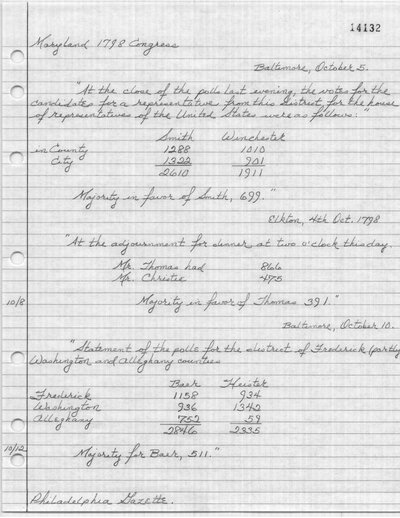 14132
Maryland 1798 Congress
Baltimore, October 5.
"At the close of the polls last evening, the votes for the
candidates for a representative from this District, for the house
of representatives of the United States were as follows:"
Smith Winchester
in County 1288 1010
City 1322 901
2610 1911
Majority in favor of Smith, 699."
Elkton, 4th Oct. 1798
"At the adjournment for dinner at two o'clock this day.
Mr. Thomas had 866
Mr. Christie 475
10/8 Majority in favor of Thomas 391."
Baltimore, October 10.
"Statement of the polls for the district of Frederick (partly
Washington and Alleghany counties
Baer Heister
Frederick 1158 934
Washington 936 1342
Alleghany 752 59
2846 2335
10/12 Majority for Baer, 511."
Philadelphia Gazette.